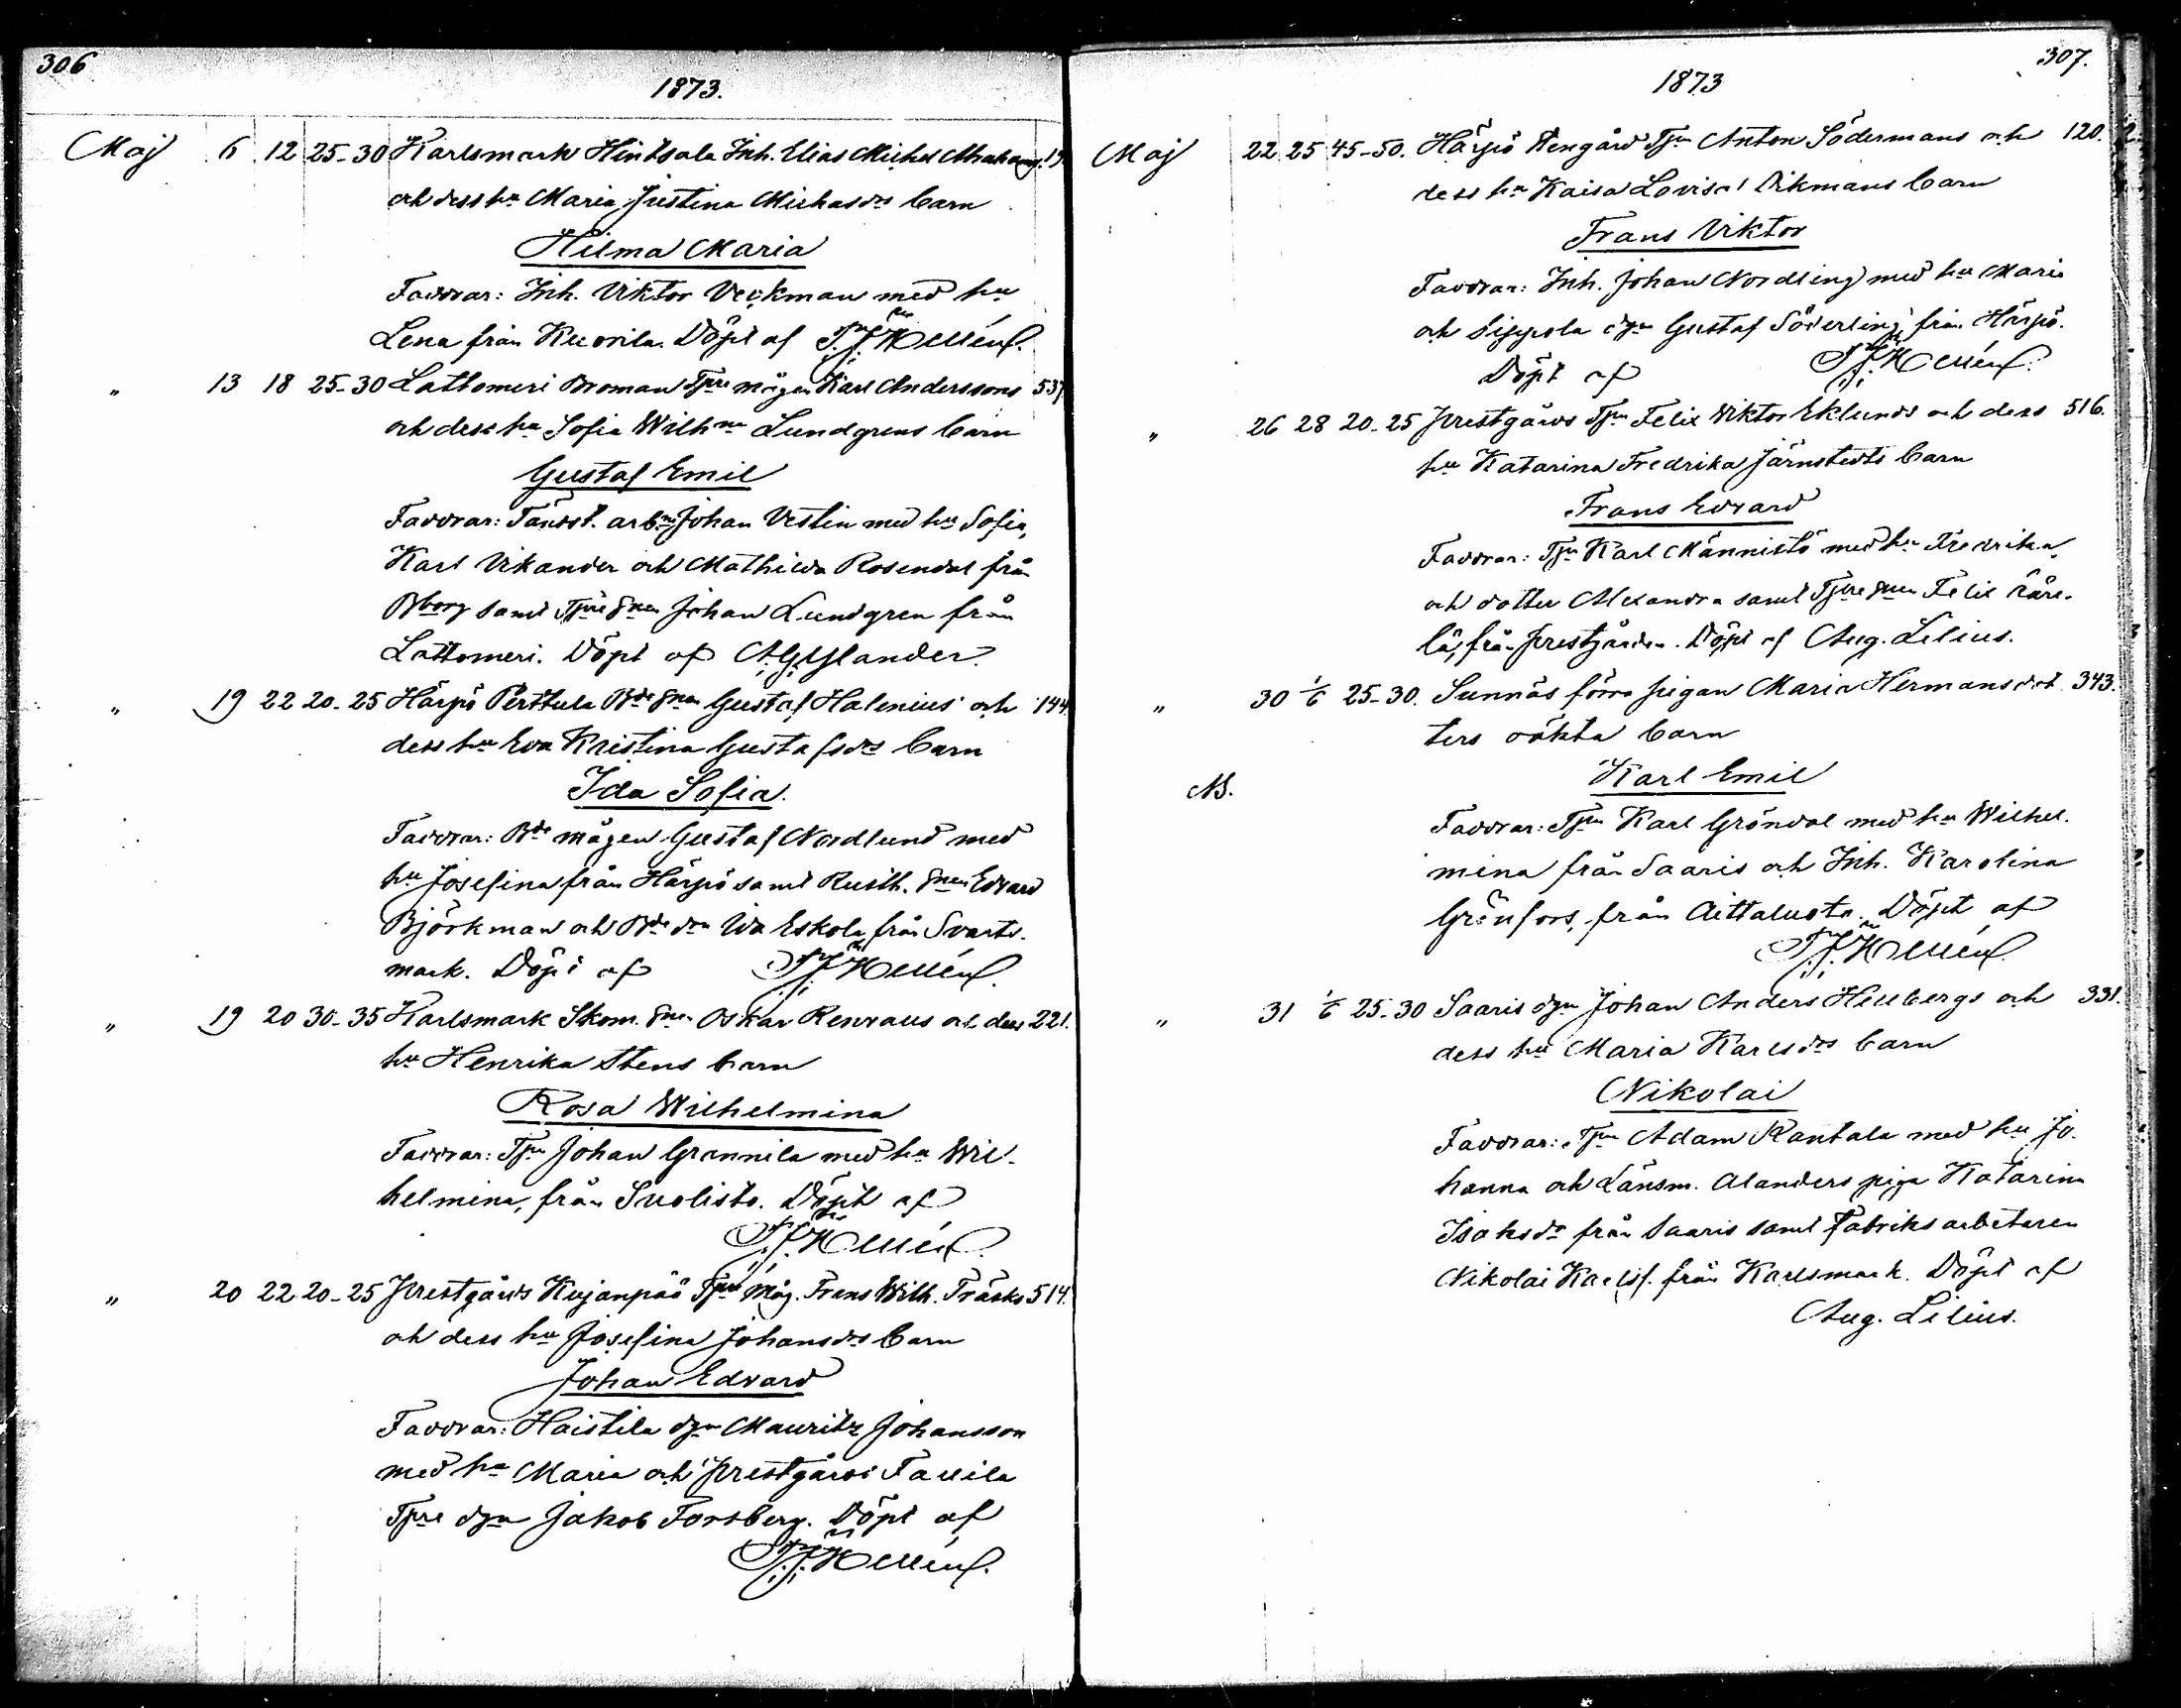 306
1873.
Maj 6 12 25-30 Karlsmark Hintsala Inh. Elias Michel 19
och dess hu Maria Justina Michasdrs barn
Hilma Maria
Faddrar: Inh. Viktor Veckman med hu
Lena från Kuorila. Döpt af F. J. Hellén.
" 13 18 25-30 Lattomeri Broman Tpre mågen Karl Anderssons 537
och dess hu Sofia Wilhna Lundgrens barn
Gustaf Emil
Faddrar: Tändst. arbn Johan Vestlin med hu Sofia,
Karl Vikander och Mathilda Rosendal från
Bborg samt Tpre Snen Johan Lundgren från
Lattomeri. Döpt af A. G. Ylander.
" 19 22 20-25 Härpö Perttula Bde Snen Gustaf Halenius och 144.
dess hu Eva Kristina Gustafsdrs barn
Ida Sofia.
Faddrar: Bde mågen Gustaf Nordlund med
hu Josefina från Härpö samt Rusth. Snen Edvard
Björkman och Bde drn Ida Eskola från Svarts-
mark. Döpt af F. J. Hellén.
" 19 20 30-35 Karlsmark Skom. Snen Oskar Renvalls och dess 221.
hu Henrika Stens barn
Rosa Wilhelmina
Faddrar: Tpn Johan Grannila med hu Wil-
helmina, från Suolisto. Döpt af
F. J. Hellén.
" 20 22 20-25 Prestgårds Kujanpää Tpre Måg. Frans Wilh. Träsks 514.
och dess hu Josefina Johansdrs barn
Johan Edvard
Faddrar: Haistila dgn Mauritz Johansson
med hu Maria och Prestgårds Tallila
Tpre dgn Jakob Forsberg. Döpt af
F. J. Hellén.
307.
1873
Maj 22 25 45-50. Härpö Tpn Anton Södermans och 120.
dess hu Kaisa Lovisa Vikmans barn
Frans Viktor
Faddrar: Inh. Johan Nordling med hu Maria
och Sippola dgn Gustaf Söderling, från Härpö.
Döpt af F. J. Hellén.
" 26 28 20-25 Prestgårds Tpn Felix Viktor Eklunds och dess 516.
hu Katarina Fredrika Järnstedts barn
Frans Edvard
Faddrar: Tpn Karl Männistö med hu Fredrika
och dotter Alexandra samt Tpre Snen Felix Kåre-
lä, från Prestgården. Döpt af Aug. Lilius.
" 30 1/6 25-30. Sunnäs förra pigan Maria Hermansdot- 343.
ters oäkta barn
NB. Karl Emil
Faddrar: Tpn Karl Gröndal med hu Wilhel-
mina från Saaris och Inh. Karolina
Grönfors, från Aittaluoto. Döpt af
F. J. Hellén.
" 31 1/6 25-30 Saaris dgn Johan Anders Hellbergs och 331.
dess hu Maria Karlsdrs barn
Nikolai
Faddrar: Tpn Adam Rantala med hu Jo-
hanna och Länsm. Alanders piga Katarina
Isaksdr från Saaris samt Fabriks arbetaren
Nikolai Karlss. från Karlsmark. Döpt af
Aug. Lilius.